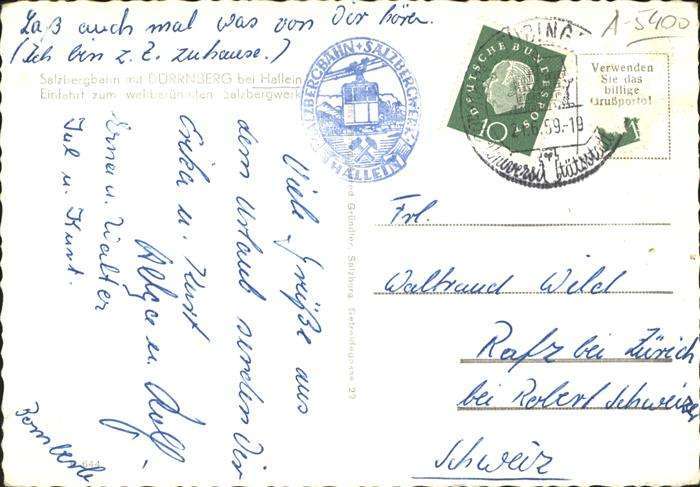 Laß auch mal was von Dir hören.
(Ich bin z. Z. zuhause.)
A-5400
Salzbergbahn mit DÜRRNBERG bei Hallein
Einfahrt zum weltberühmten Salzbergwerk
SALZBERGBAHN + SALZBERGWERK
HALLEIN
DEUTSCHE BUNDESPOST
10
59.-19
Universitätsstadt
Verwenden
Sie das
billige
Grußporto!
Viele Grüße aus
dem Urlaub senden Dir
Erika u. Kurt
Erna u. Walter
Jul u. Kurt.
Frl.
Waltraud Wild
Rafz bei Zürich
bei Robert Schweizer
Schweiz
Salzburg, Getreidegasse 22